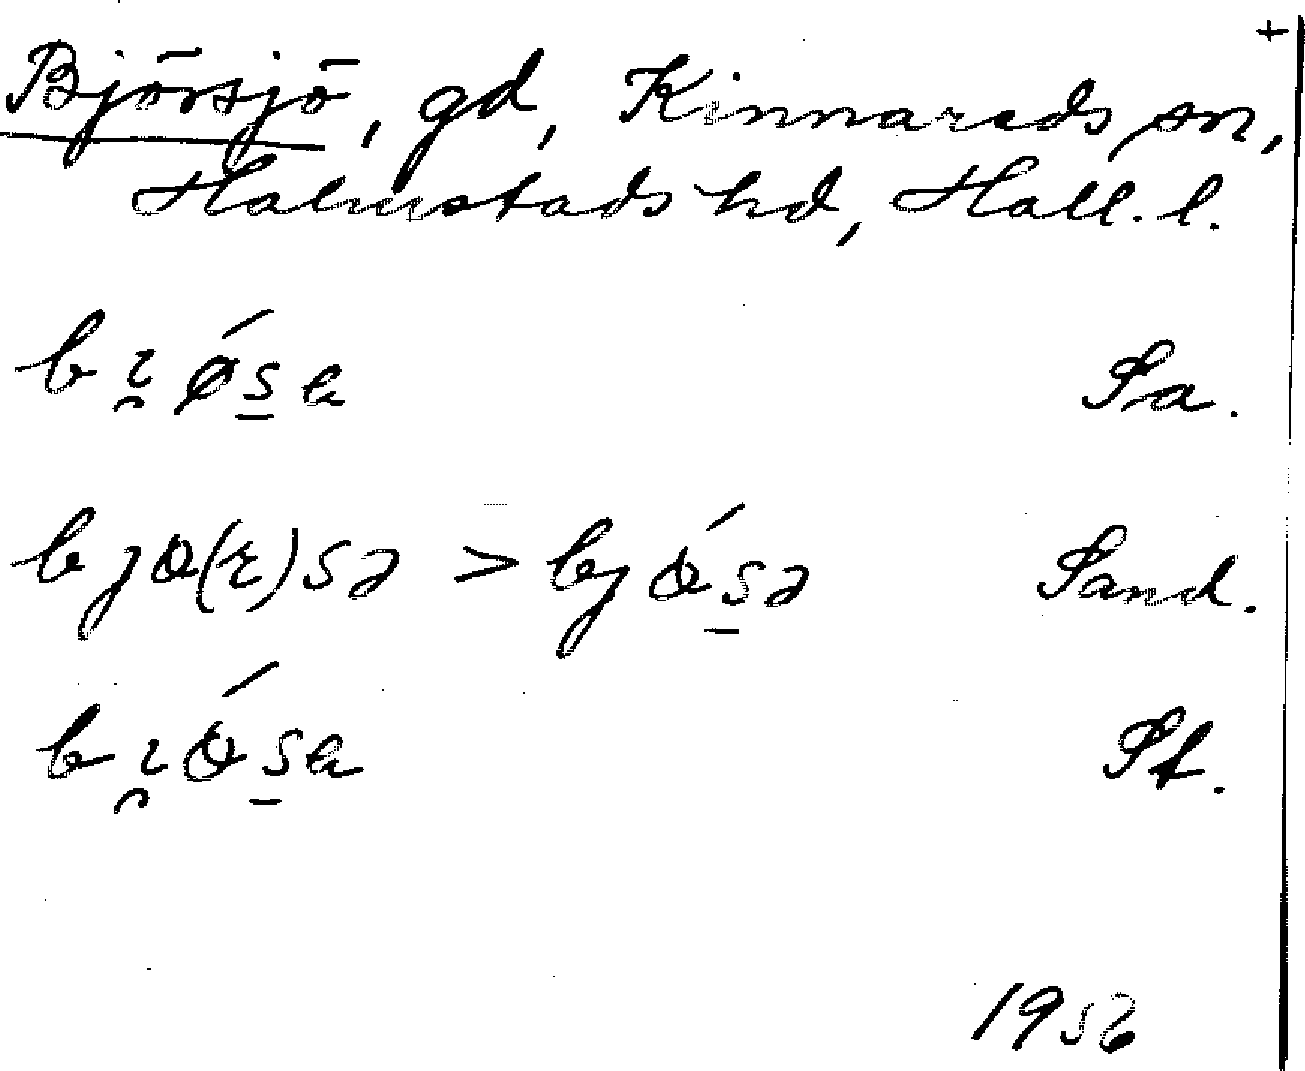 +
Björsjö, gd, Kinnareds sn,
Halmstads hd, Hall. l.
bɩ̯ǿs̠a Sa.
bjɵ(r)sə > bjɵ́s̠ə Sand.
bɩ̯ɵ́s̠a Sf.